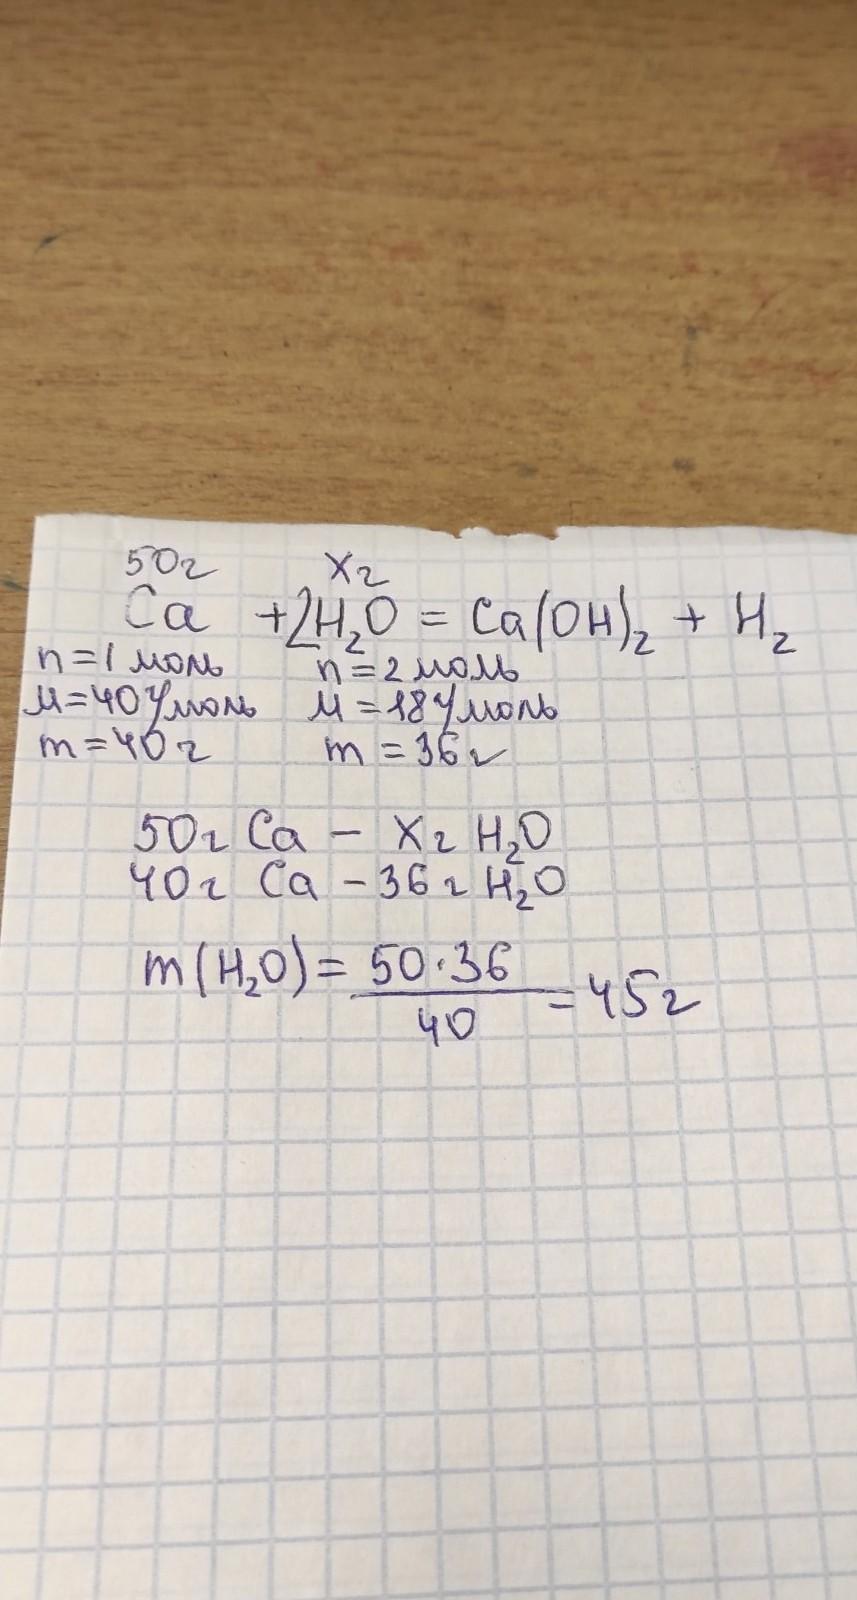 50г xг
Ca + 2H₂O = Ca(OH)₂ + H₂
n=1 моль n=2 моль
M=40 г/моль M=18 г/моль
m=40 г m=36 г
50г Ca – xг H₂O
40г Ca – 36г H₂O
m(H₂O) = 50·36 / 40 = 45г